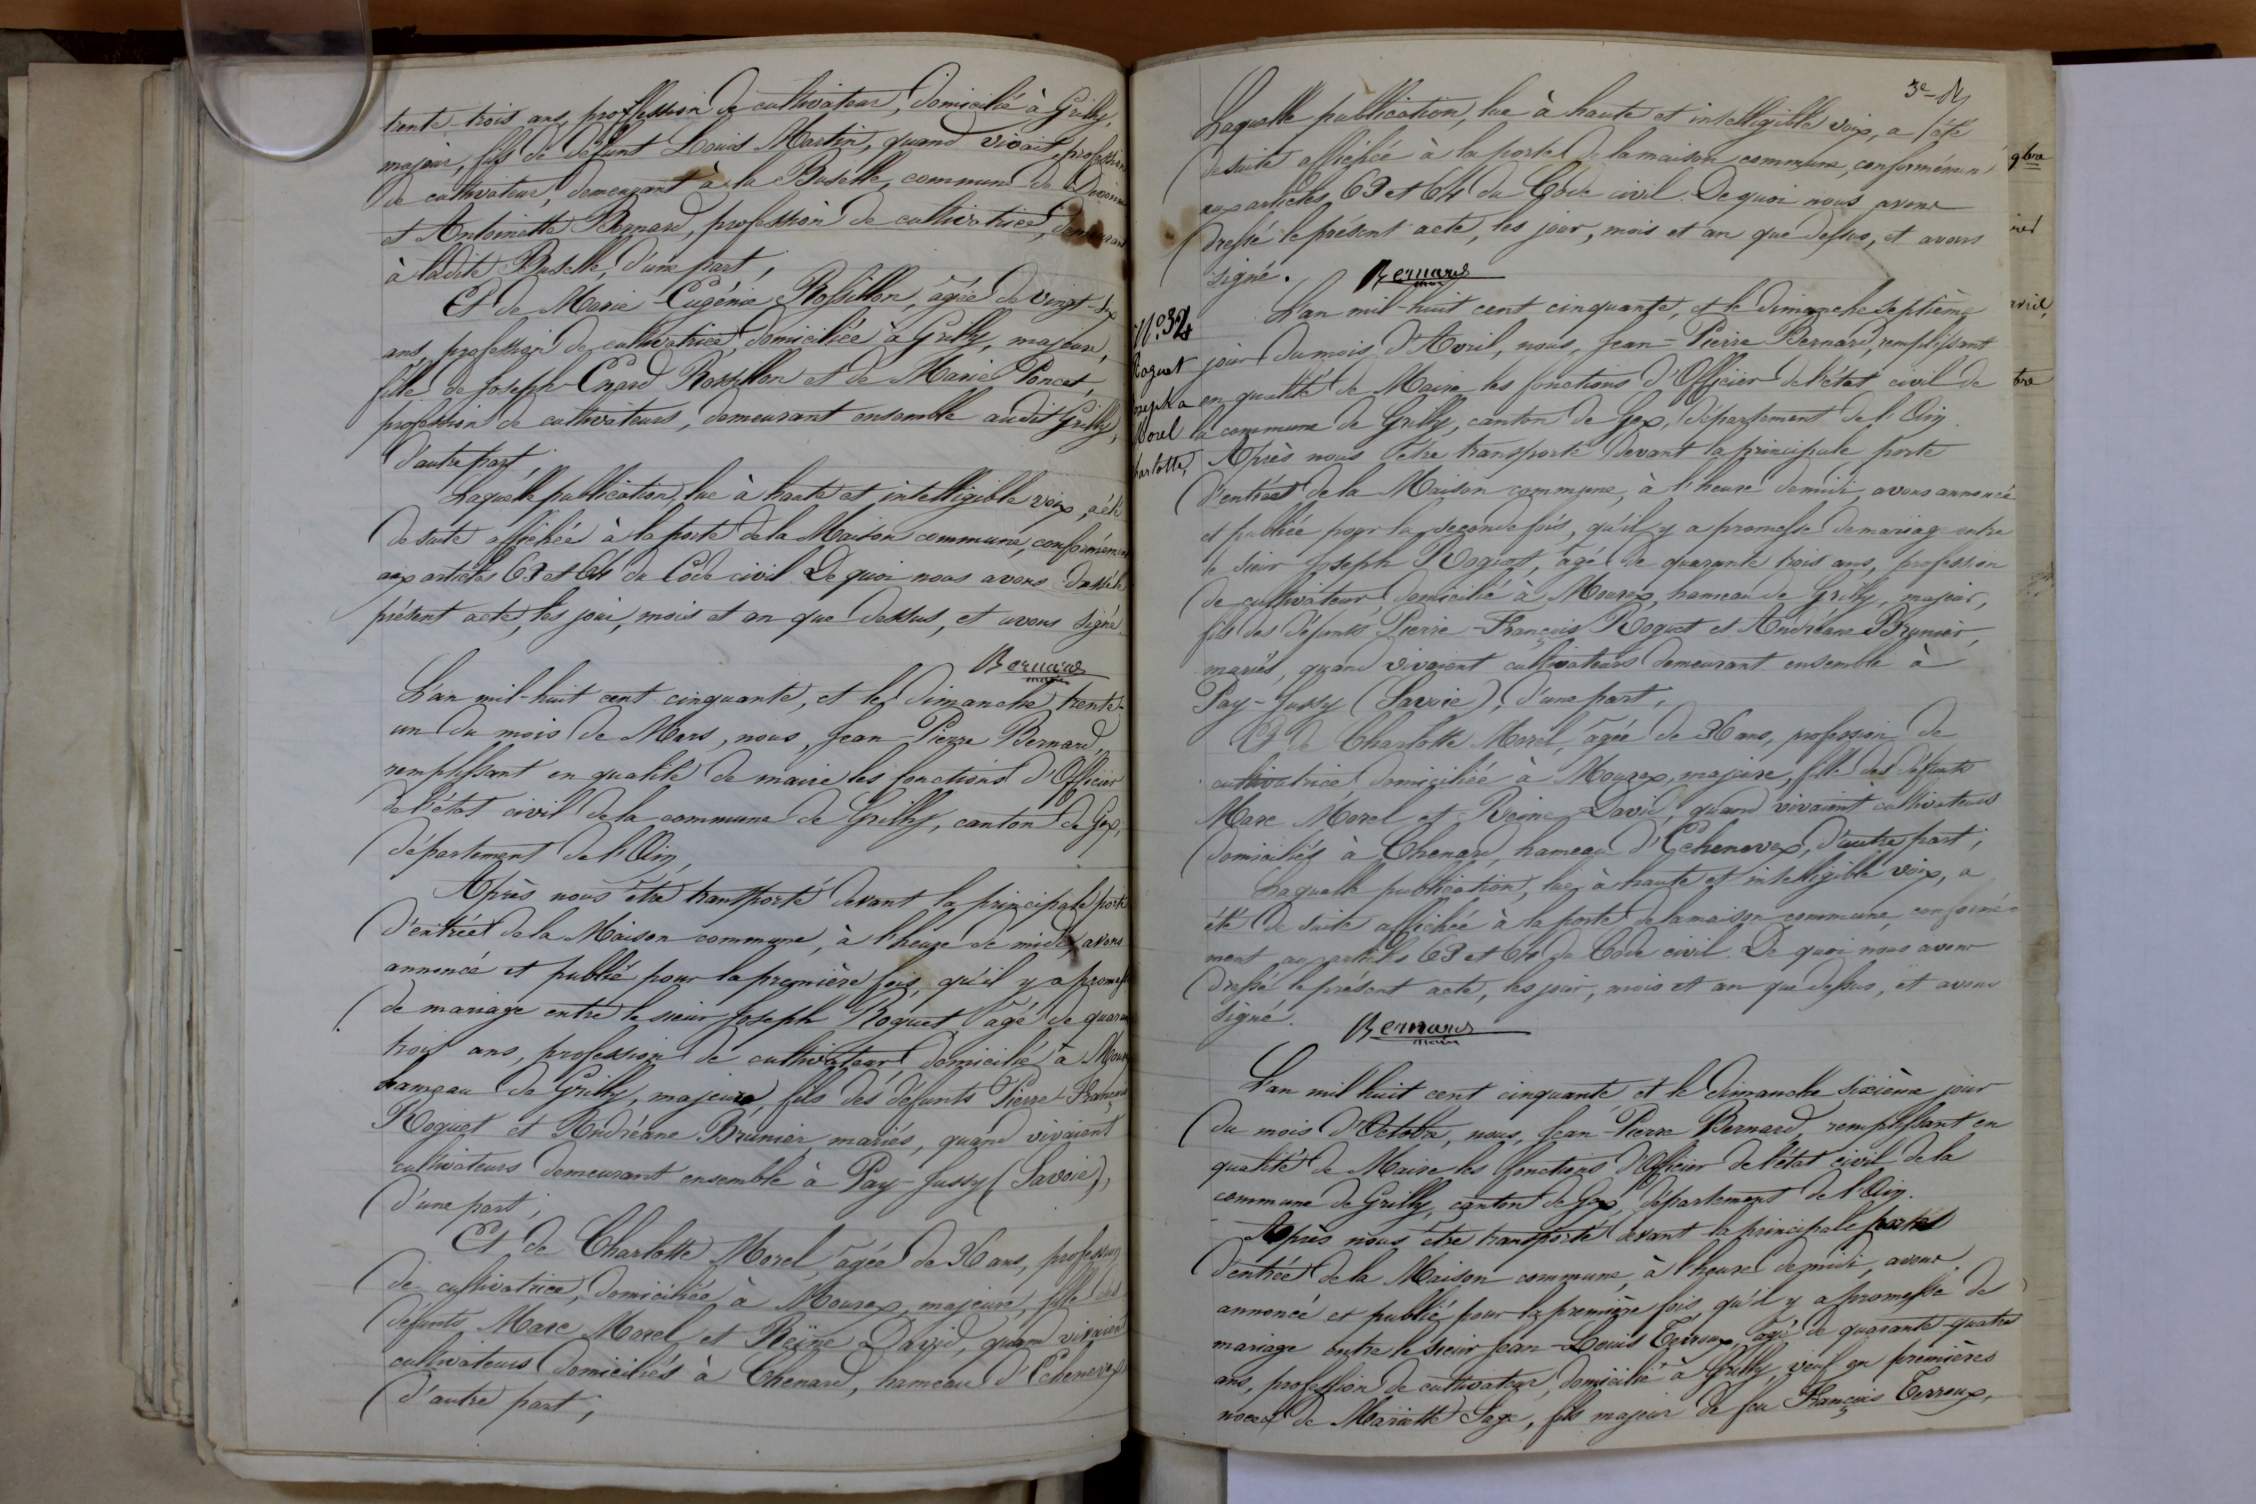 trente-trois ans, proffession de cultivateur, domicilié à Grilly,
majeur, fils de défunt Louis Martin, quand vivait, profession
de cultivateur, demeurant à la Buselle, commune de Divonne
et Antoinette Bernard, profession de cultivatrice, demeurant
à ladite Buselle, d'une part,
Et de Marie-Eugénie Rossillon, âgée de vingt-six
ans, profession de cultivatrice, domiciliée à Grilly, majeure,
fille de Joseph-Enard Rossillon et de Marie Poncet,
profession de cultivateurs, demeurant ensemble audit Grilly,
d'autre part,
Laquelle publication, lue à haute et intelligible voix, a été
de suite affichée à la porte de la Maison commune, conformément
aux articles 63 et 64 du Code civil. De quoi nous avons dressé le
présent acte, les jour, mois et an que dessus, et avons signé.
Bernard
maire
L'an mil-huit cent cinquante, et le dimanche trente-
un du mois de Mars, nous, Jean-Pierre Bernard,
remplissant en qualité de maire les fonctions d'Officier
de l'état civil de la commune de Grilly, canton de Gex,
département de l'Ain,
Après nous être transporté devant la principale porte
d'entrée de la Maison commune, à l'heure de midi, avons
annoncé et publié pour la première fois, qu'il y a promesse
de mariage entre le sieur Joseph Roguet, âgé de quarante
trois ans, profession de cultivateur, domicilié à Mourex
hameau de Grilly, majeur, fils des défunts Pierre-François
Roguet et Andréane Brunier, mariés, quand vivaient
cultivateurs demeurant ensemble à Pay-Jussy (Savoie),
d'une part,
Et de Charlotte Morel, âgée de 36 ans, profession
de cultivatrice, domiciliée à Mourex, majeure, fille des
défunts Marc Morel et Reine David, quand vivaient
cultivateurs domiciliés à Chenard, hameau d'Echenevex,
d'autre part,
3e-
Laquelle publication, lue à haute et intelligible voix, a été
de suite affichée à la porte de la maison commune, conformément
aux articles 63 et 64 du Code civil. De quoi nous avons
dressé le présent acte, les jour, mois et an que dessus, et avons
signé. Bernard
maire
N°. 34
Roguet
Joseph a
Morel
Charlotte,
L'an mil-huit cent cinquante, et le dimanche septième
jour du mois d'Avril, nous, Jean-Pierre Bernard, remplissant
en qualité de Maire les fonctions d'Officier de l'état civil de
la commune de Grilly, canton de Gex, département de l'Ain.
Après nous être transporté devant la principale porte
d'entrée de la Maison commune, à l'heure de midi, avons annoncé
et publiée pour la seconde fois, qu'il y a promesse de mariage entre
le sieur Joseph Roguet, âgé de quarante trois ans, profession
de cultivateur, domicilié à Mourex, hameau de Grilly, majeur,
fils des défunts Pierre-François Roguet et Andréane Brunier,
mariés, quand vivaient cultivateurs demeurant ensemble à
Pay-Jussy (Savoie), d'une part,
Et de Charlotte Morel, âgée de 36 ans, profession de
cultivatrice, domiciliée à Mourex, majeure, fille des défunts
Marc Morel et Reine David, quand vivaient cultivateurs
domiciliés à Chenard, hameau d'Echenevex, d'autre part,
Laquelle publication, lue à haute et intelligible voix, a
été de suite affichée à la porte de la maison commune, conformé-
ment aux articles 63 et 64 du Code civil. De quoi nous avons
dressé le présent acte, les jour, mois et an que dessus, et avons
signé. Bernard
maire
L'an mil huit cent cinquante, et le dimanche sixième jour
du mois d'Octobre, nous, Jean-Pierre Bernard, remplissant en
qualité de Maire les fonctions d'Officier de l'état civil de la
commune de Grilly, canton de Gex, département de l'Ain.
Après nous être transporté devant la principale porte
d'entrée de la Maison commune, à l'heure de midi, avons
annoncé et publié pour la première fois, qu'il y a promesse de
mariage entre le sieur Jean-Louis Terroux, âgé de quarante-quatre
ans, profession de cultivateur, domicilié à Grilly, veuf en premières
noces de Mariette Sage, fils majeur de feu François Terroux,